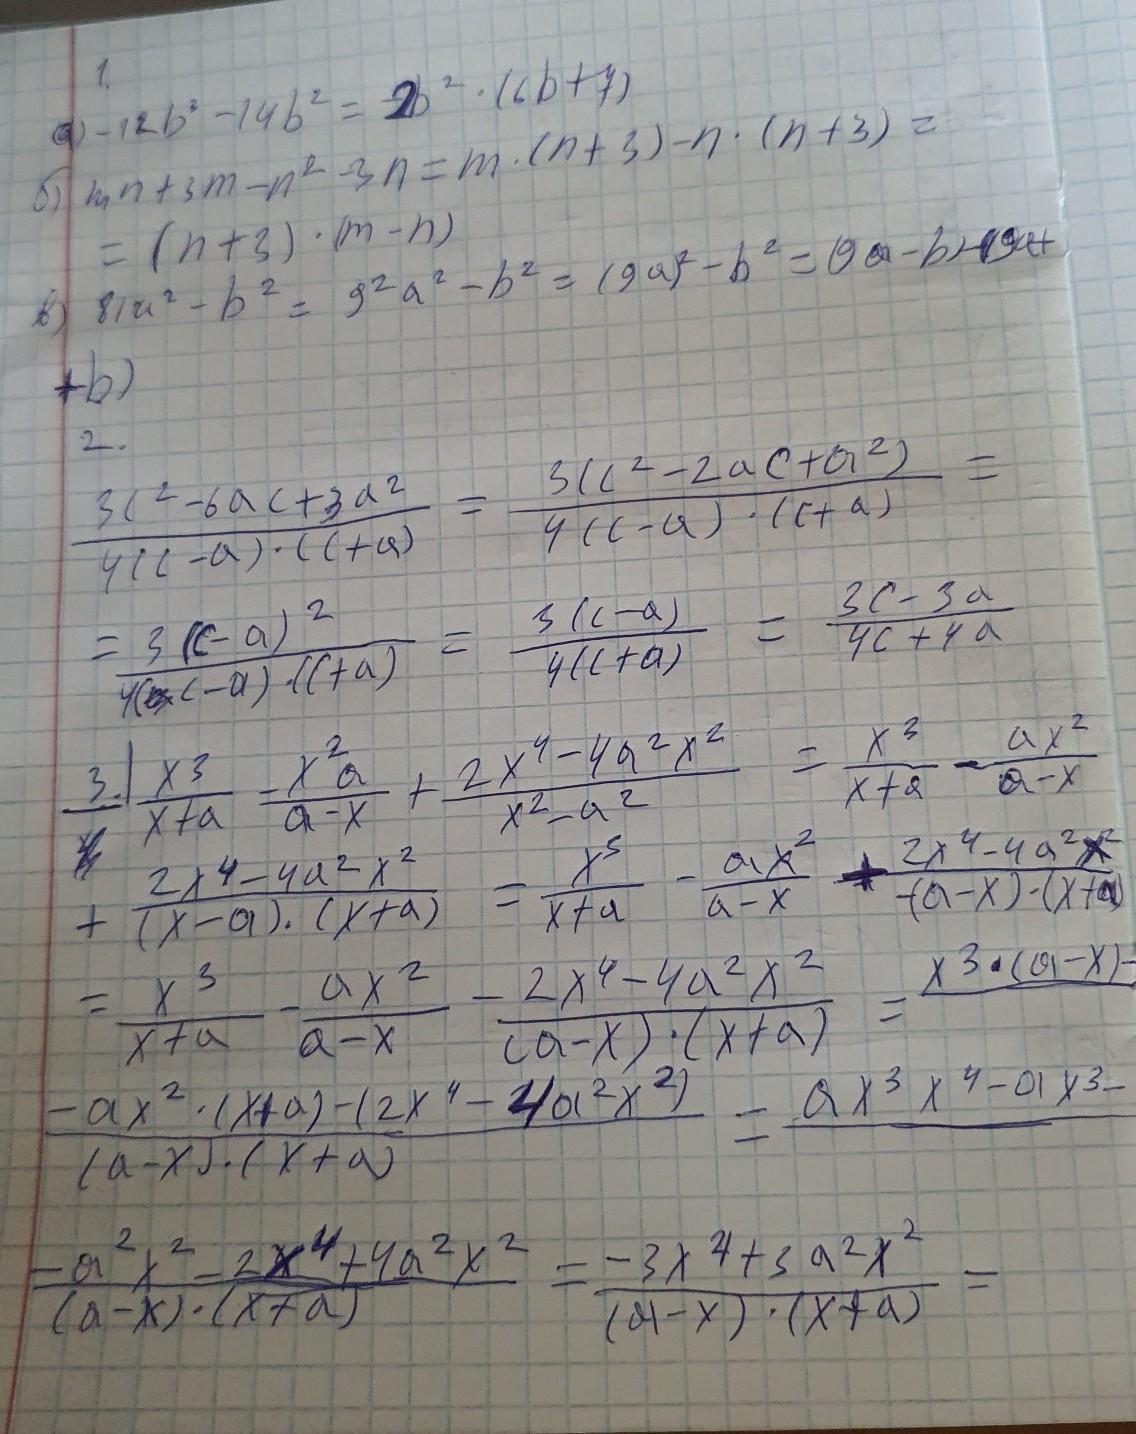 1.
а) -12b³ - 14b² = -2b² · (6b+7)
б) mn + 3m - n² - 3n = m · (n+3) - n · (n+3) =
= (n+3) · (m-n)
в) 81a² - b² = 9²a² - b² = (9a)² - b² = (9a-b)·(9a+
+b)
2.
(3c² - 6ac + 3a²)/(4(c-a)·(c+a)) = (3(c² - 2ac + a²))/(4(c-a)·(c+a)) =
= (3(c-a)²)/(4(c-a)·(c+a)) = (3(c-a))/(4(c+a)) = (3c-3a)/(4c+4a)
3. x³/(x+a) - x²a/(a-x) + (2x⁴-4a²x²)/(x²-a²) = x³/(x+a) - ax²/(a-x)
+ (2x⁴-4a²x²)/((x-a)·(x+a)) = x³/(x+a) - ax²/(a-x) + (2x⁴-4a²x²)/(-(a-x)·(x+a))
= x³/(x+a) - ax²/(a-x) - (2x⁴-4a²x²)/((a-x)·(x+a)) = x³·(a-x)-
(-ax²·(x+a)-(2x⁴-4a²x²))/((a-x)·(x+a)) = ax³ x⁴-ax³-
(-a²x²-2x⁴+4a²x²)/((a-x)·(x+a)) = (-3x⁴+3a²x²)/((a-x)·(x+a)) =